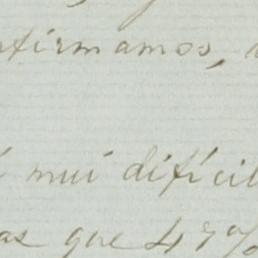 nfirmamos,
mui difícil
as que 47%